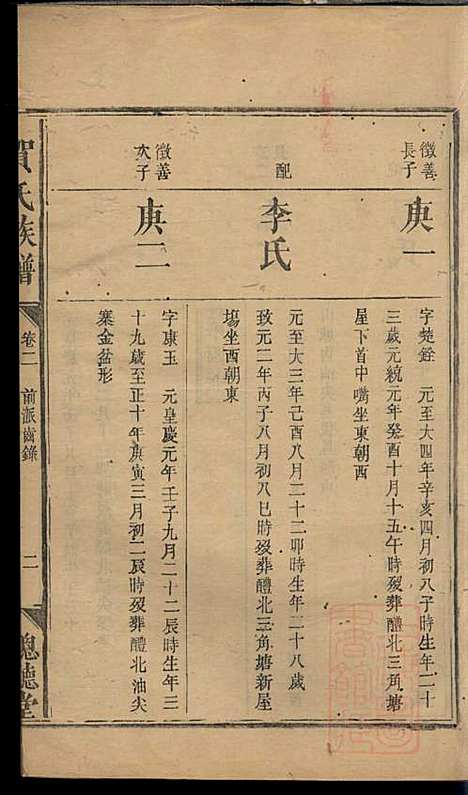 徵善
長子
庚一
字楚銓　元至大四年辛亥四月初八子時生年二十
三歲元統元年癸酉十月十五午時歿葬醴北三角塘
屋下首中嘴坐東朝西
配
李氏
元至大三年己酉八月二十二卯時生年二十八歲
致元二年丙子八月初八巳時歿葬醴北三角塘新屋
塲坐酉朝東
徵善
次子
庚二
字康玉　元皇慶元年壬子九月二十二辰時生年三
十九歲至正十年庚寅三月初二辰時歿葬醴北油尖
寨金盆形
賀氏族譜
卷二
前派齒錄
二
聽德堂